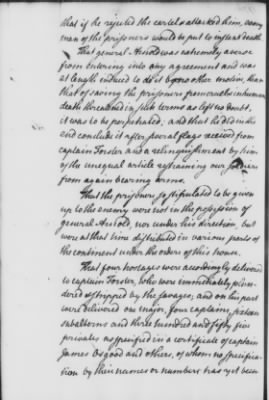 that if he rejected the cartel & attacked him, every
man of the prisoners would be put to instant death.
That general Arnold was extremely averse
from entering into any agreement and was
at length induced to do it by no other motive than
that of saving the prisoners from cruel & inhuman
death threatened in such terms as left no doubt
it was to be perpetrated; and that he did in the
end conclude it after several flags received from
captain Forster and a relinquishment by him
of the unequal article restraining our soldiers
from again bearing arms.
That the prisoners so stipulated to be given
up to the enemy were not in the possession of
general Arnold, nor under his direction, but
were at that time distributed in various parts of
the continent under the orders of this house.
That four hostages were accordingly delivered
to captain Forster, who were immediately plun-
dered & stripped by the savages; and on his part
were delivered one major, four captains, sixteen
subalterns and three hundred and fifty five
privates as specified in a certificate of captain
James Osgood and others, of whom no specifica-
tion by their names or numbers has yet been